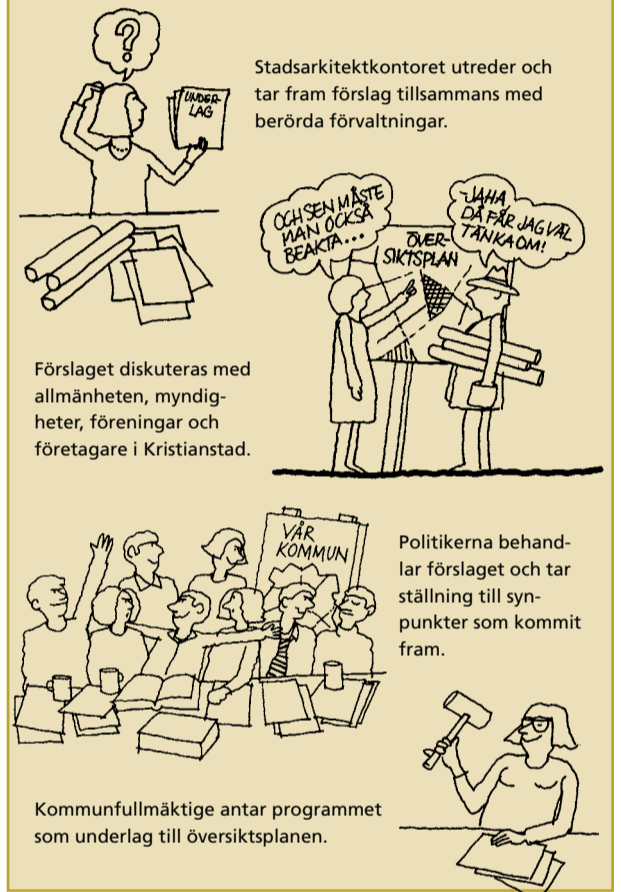 ?
UNDER-
LAG
Stadsarkitektkontoret utreder och
tar fram förslag tillsammans med
berörda förvaltningar.
OCH SEN MÅSTE
MAN OCKSÅ
BEAKTA...
ÖVER-
SIKTSPLAN
-JAHA
DÅ FÅR JAG VÄL
TÄNKA OM!
Förslaget diskuteras med
allmänheten, myndig-
heter, föreningar och
företagare i Kristianstad.
VÅR
KOMMUN
Politikerna behand-
lar förslaget och tar
ställning till syn-
punkter som kommit
fram.
Kommunfullmäktige antar programmet
som underlag till översiktsplanen.